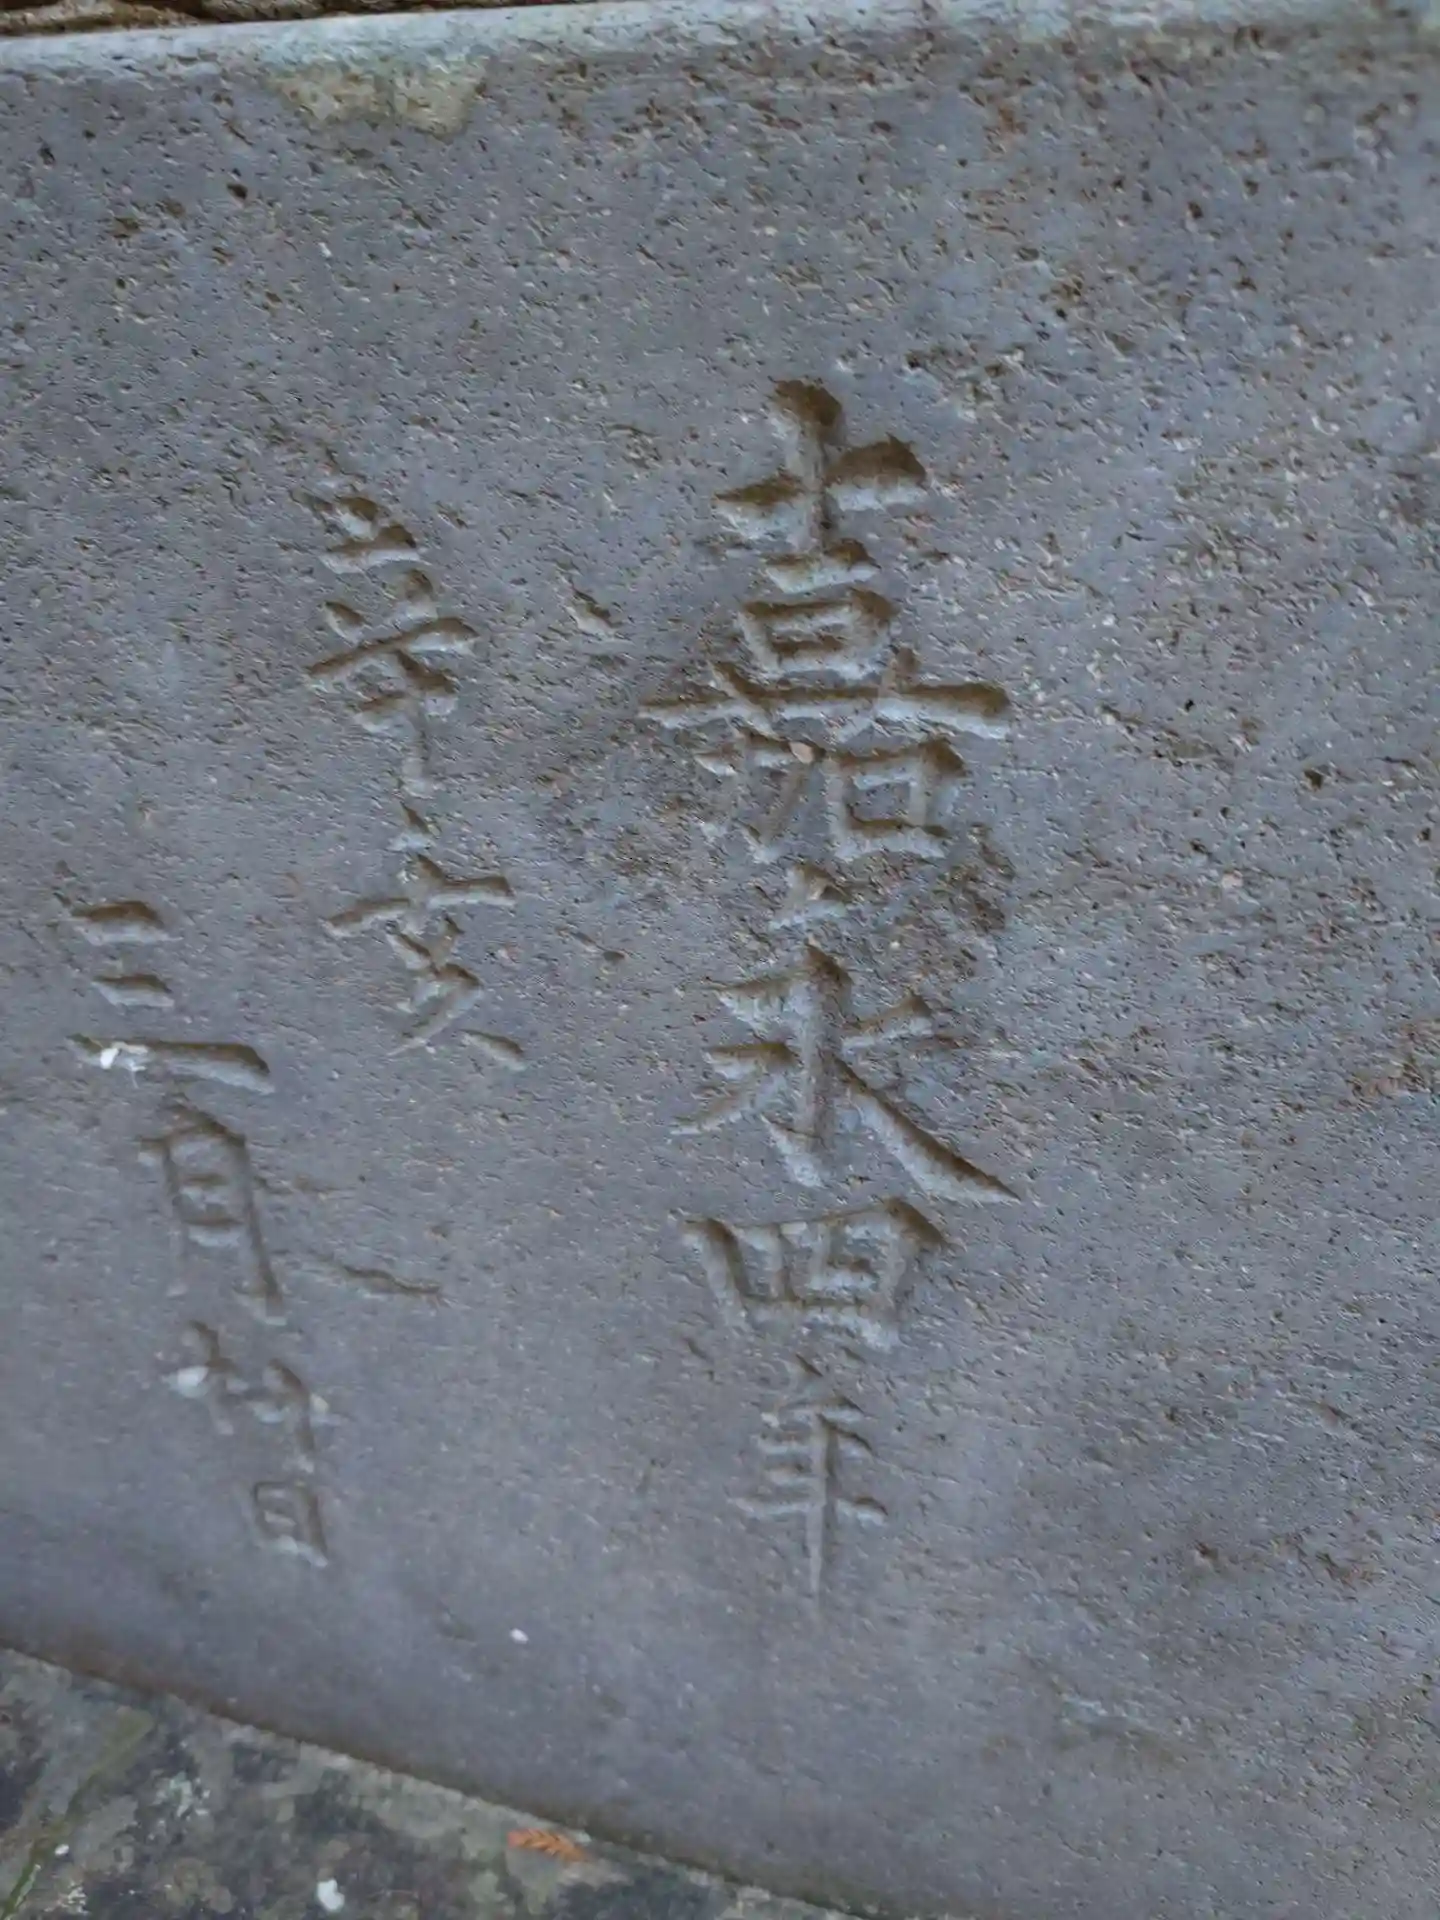 嘉永四年
辛亥
三月日